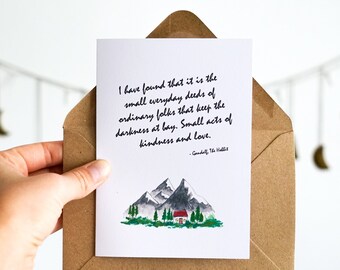 I have found that it is the
small everyday deeds of
ordinary folks that keep the
darkness at bay. Small acts of
kindness and love.
- Gandalf, The Hobbit